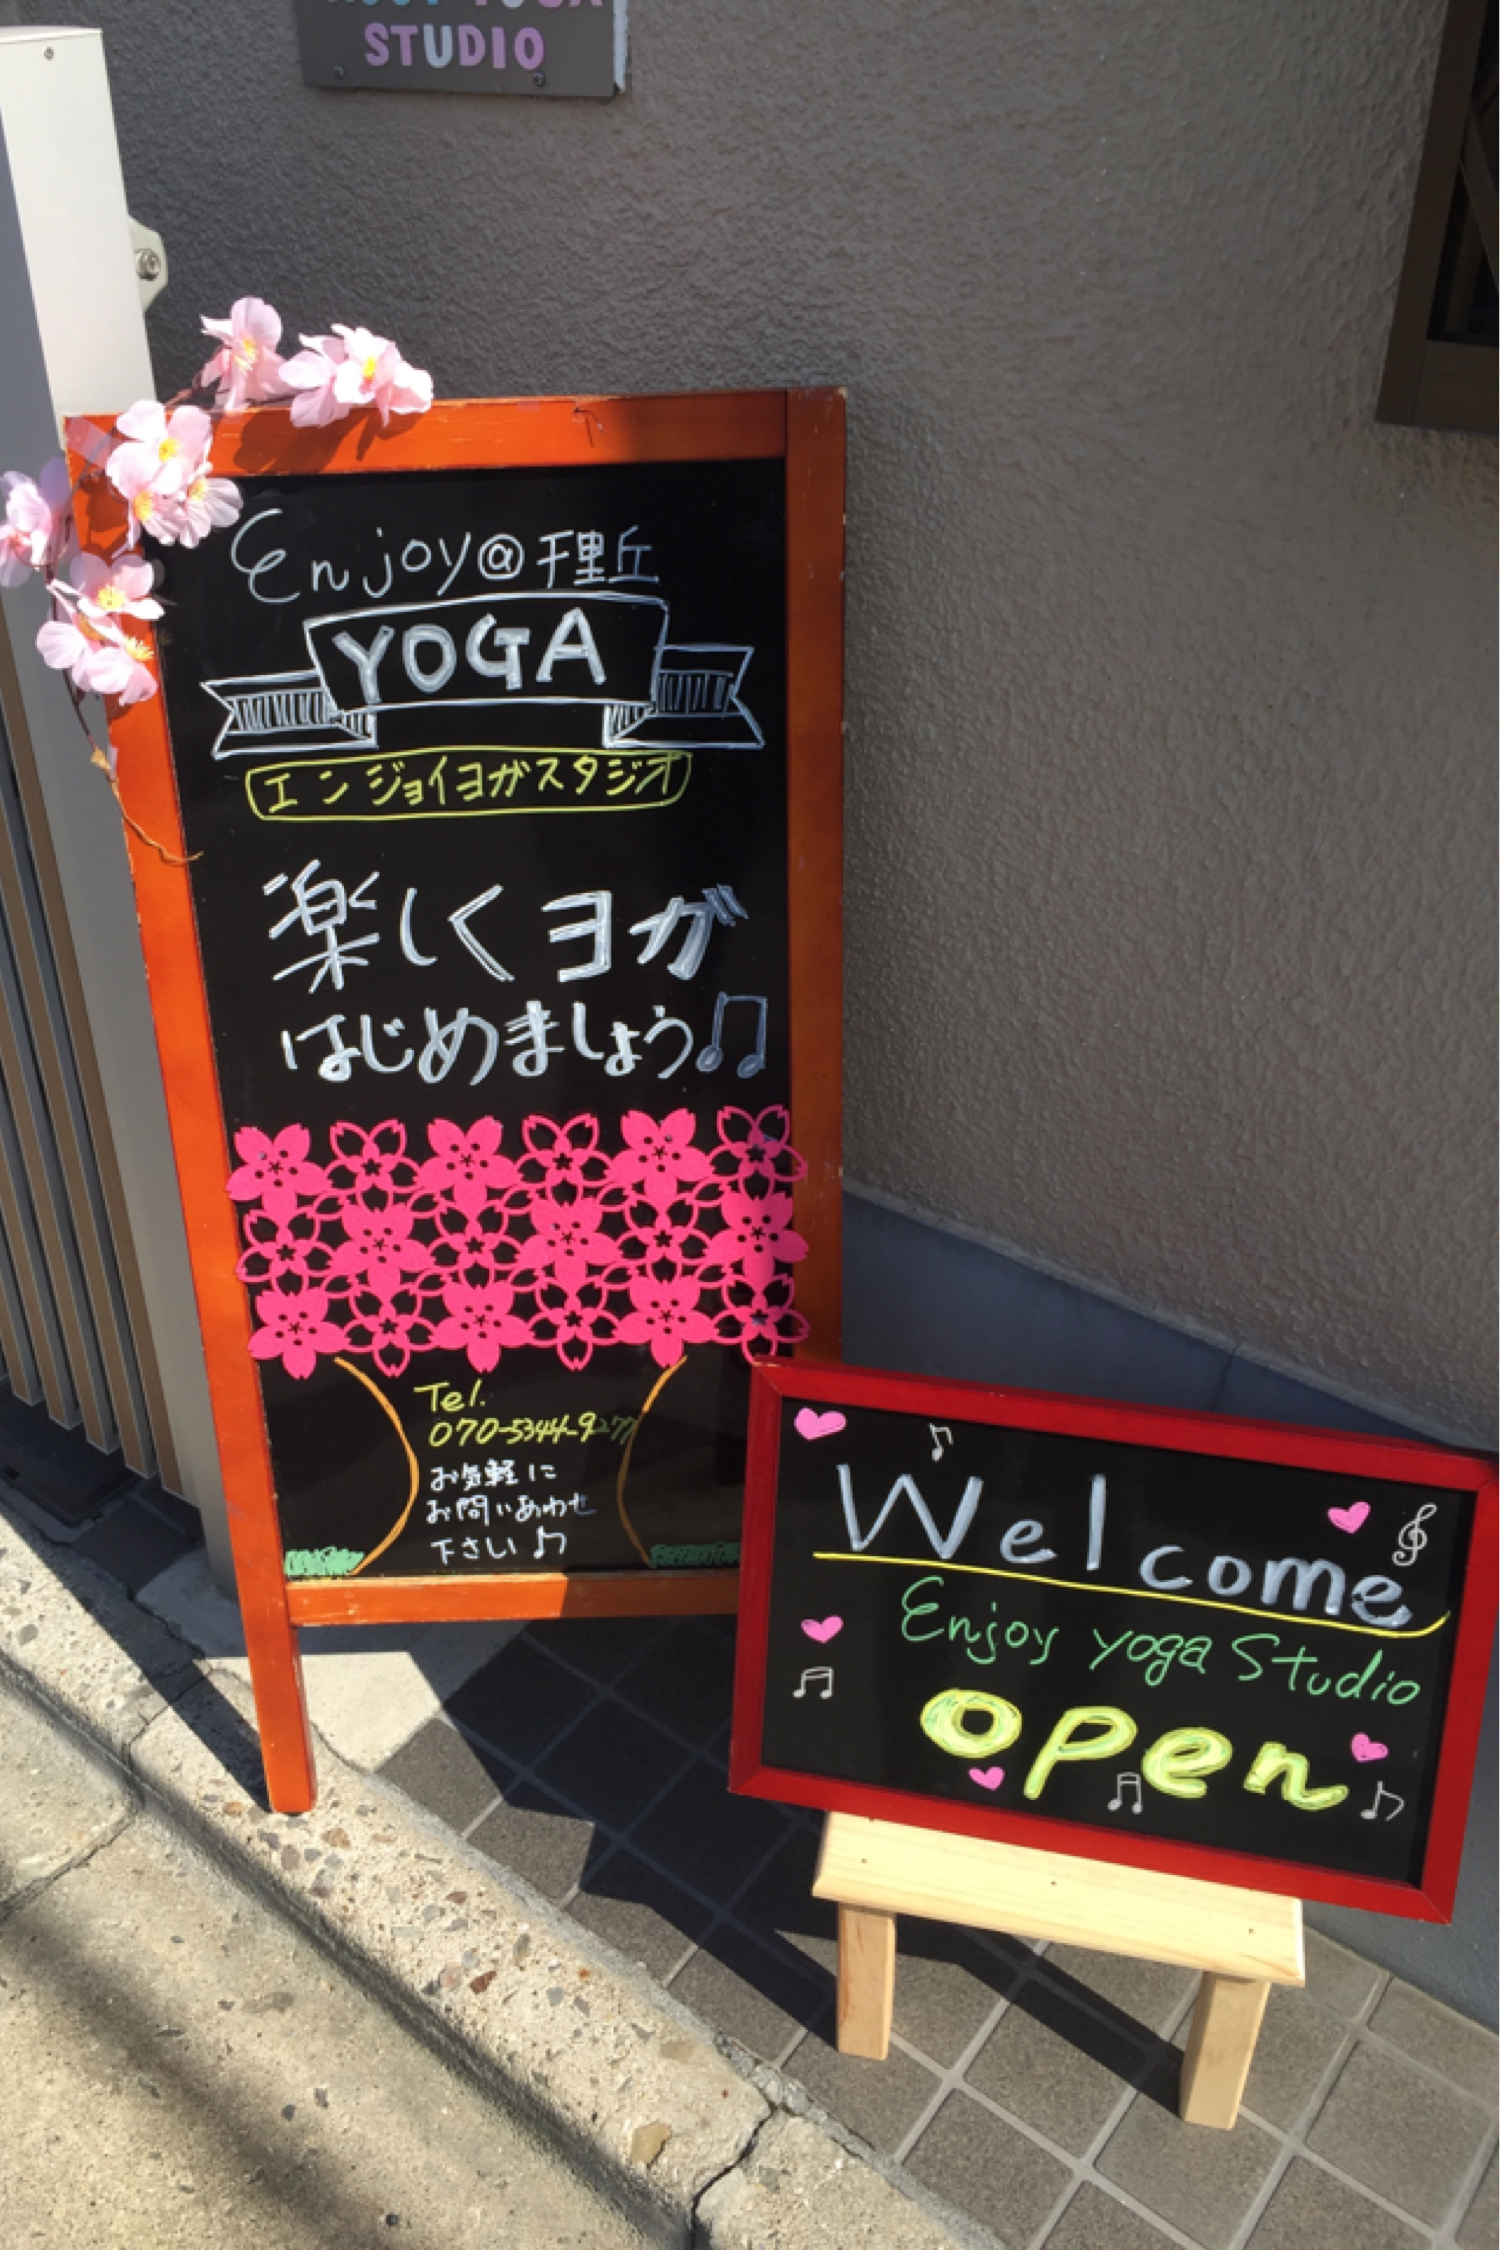 STUDIO
Enjoy@千里丘
YOGA
エンジョイヨガスタジオ
楽しくヨガ
はじめましょう♫
Tel.
070-5344-9277
お気軽に
お問いあわせ
下さい♪
Welcome
Enjoy yoga Studio
open